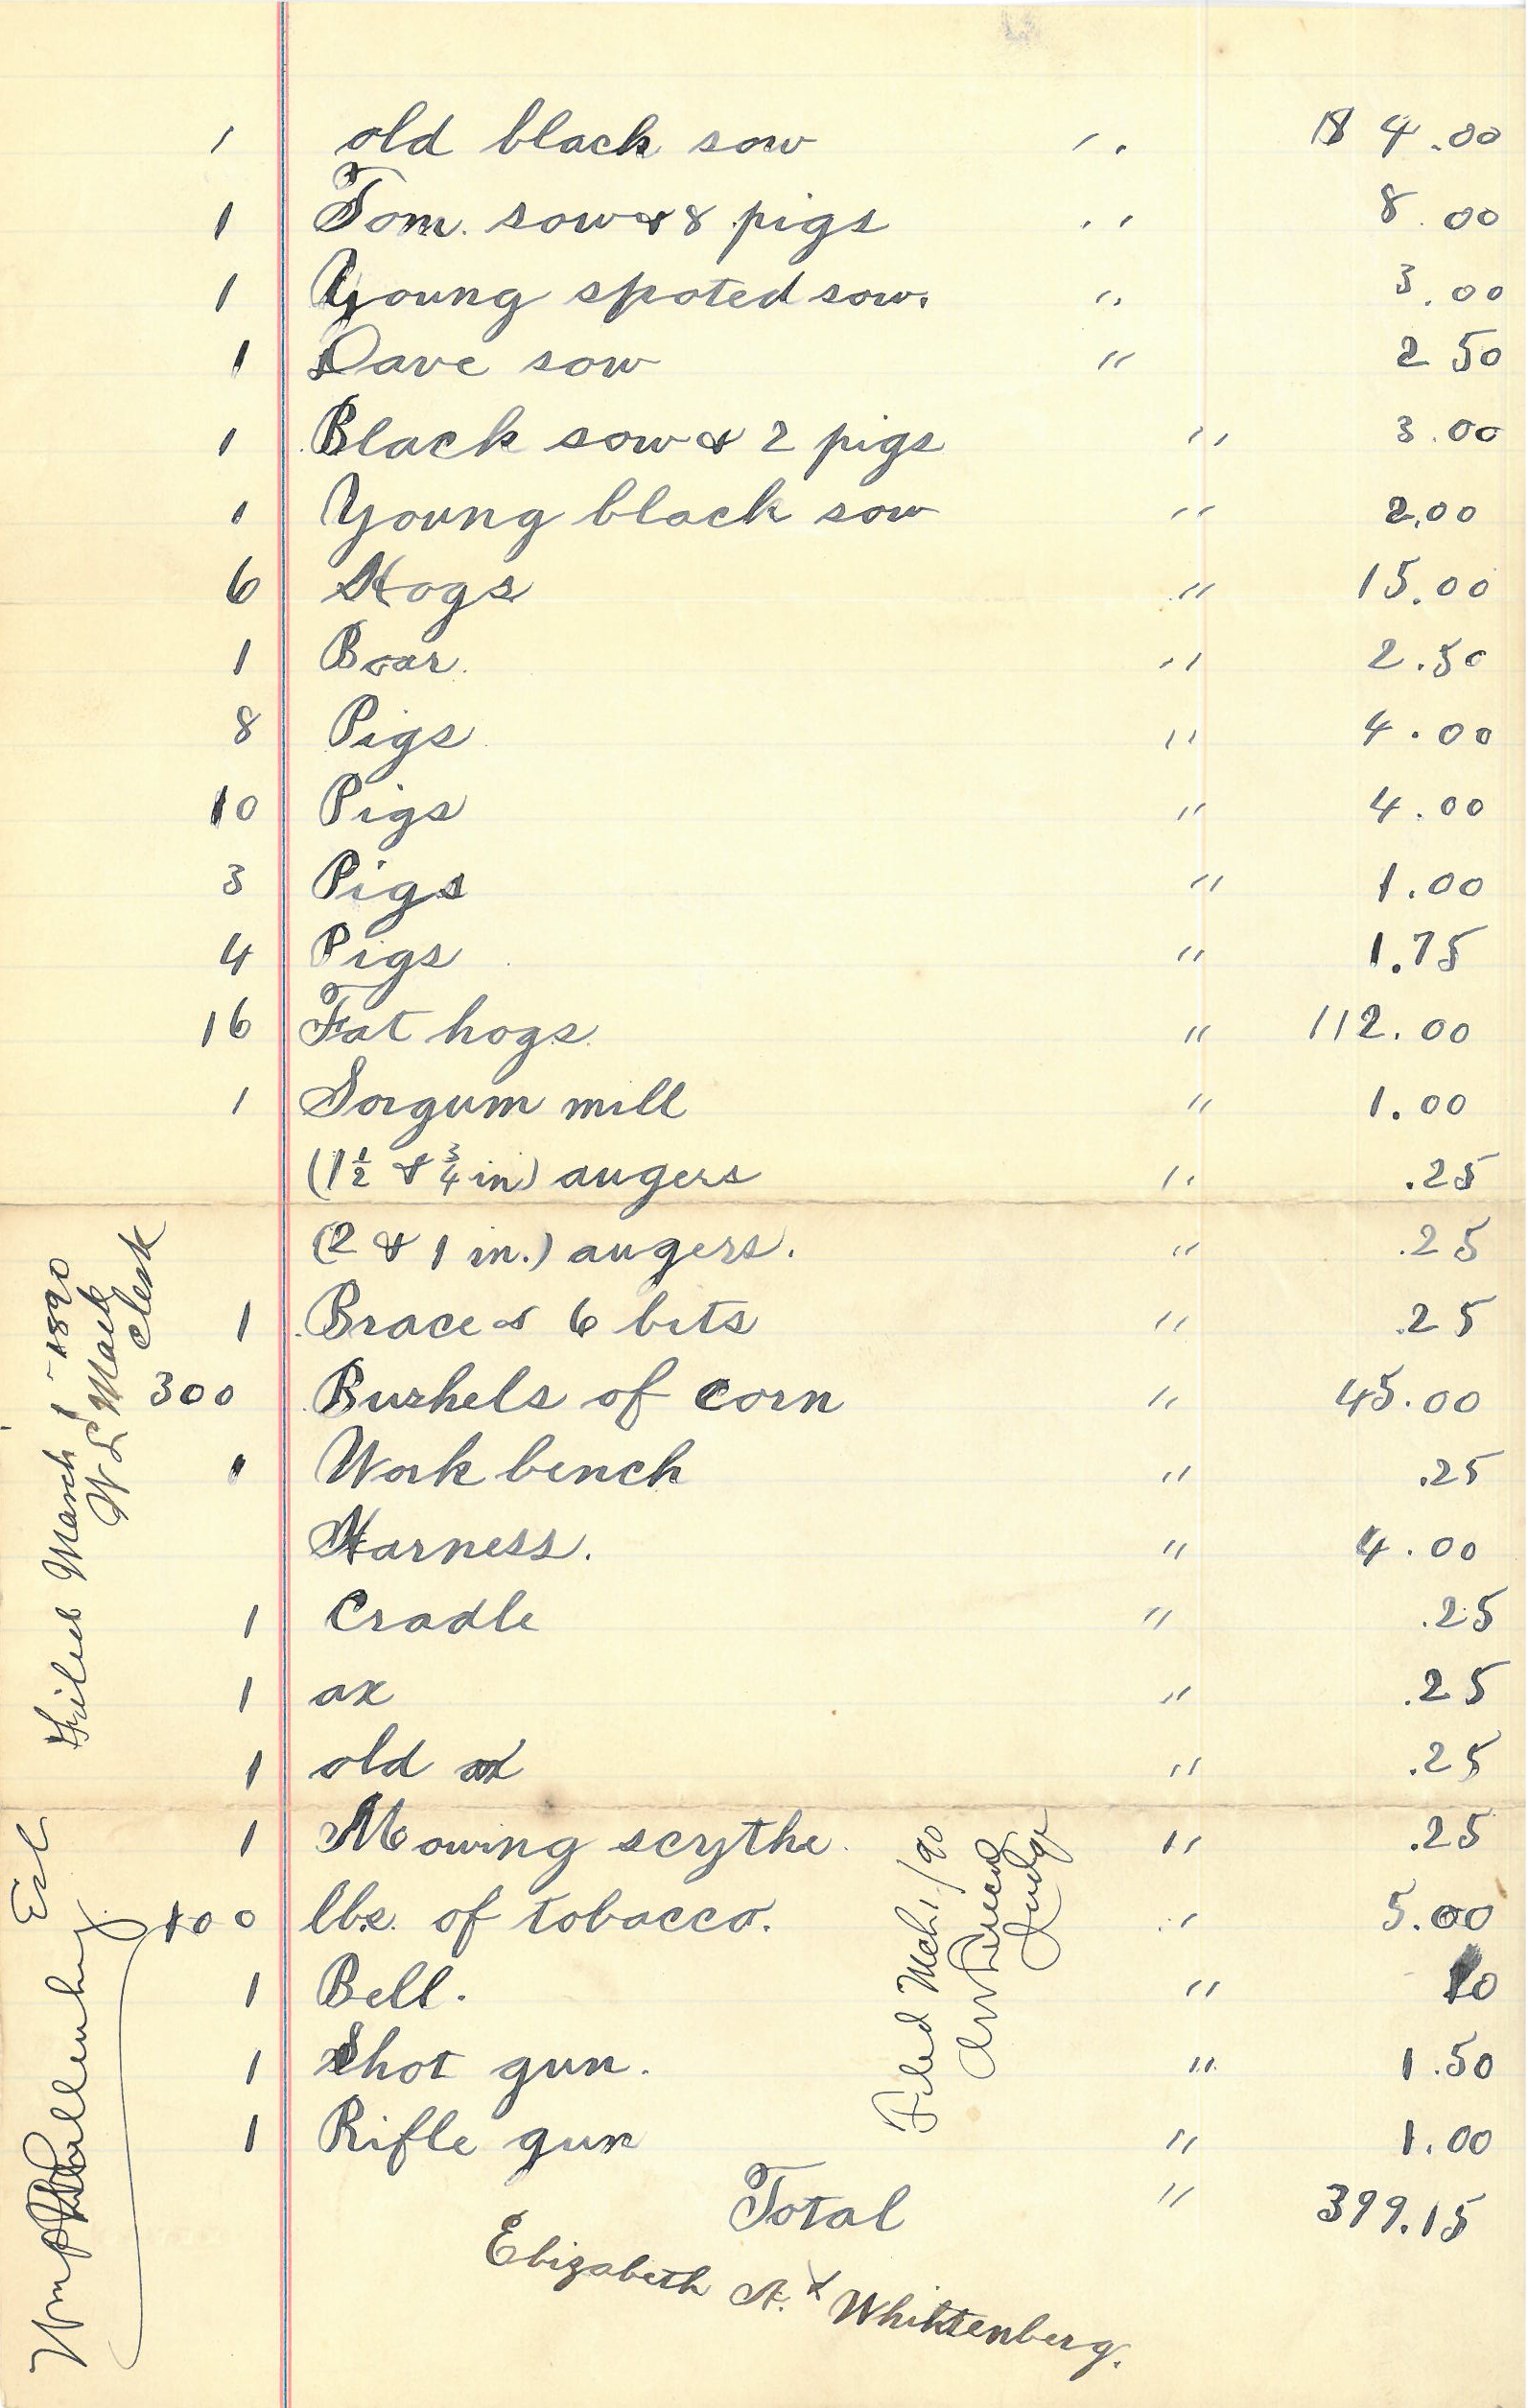 1 old black sow " $ 4.00
1 Tom. sow & 8 pigs " 8.00
1 Young spoted sow. " 3.00
1 Dave sow " 2 50
1 Black sow & 2 pigs " 3.00
1 Young black sow " 2.00
6 Hogs " 15.00
1 Boar. " 2.50
8 Pigs " 4.00
10 Pigs " 4.00
3 Pigs " 1.00
4 Pigs " 1.75
16 Fat hogs. " 112.00
1 Sorgum mill " 1.00
(1½ & ¾ in) augers " .25
(2 & 1 in.) augers. " .25
1 Brace & 6 bits " .25
300 Bushels of corn " 45.00
1 Work bench " .25
Harness. " 4.00
1 Cradle " .25
1 ax " .25
1 old ax " .25
1 Mowing scythe. " .25
100 lbs. of tobacco. " 5.00
1 Bell. " 10
1 Shot gun. " 1.50
1 Rifle gun " 1.00
Total " 399.15
Elizabeth A. x Whittenberg.
Filed March 1 - 1890
W L Mack
Clerk
Filed Mch. 1/90
Judge
Wm